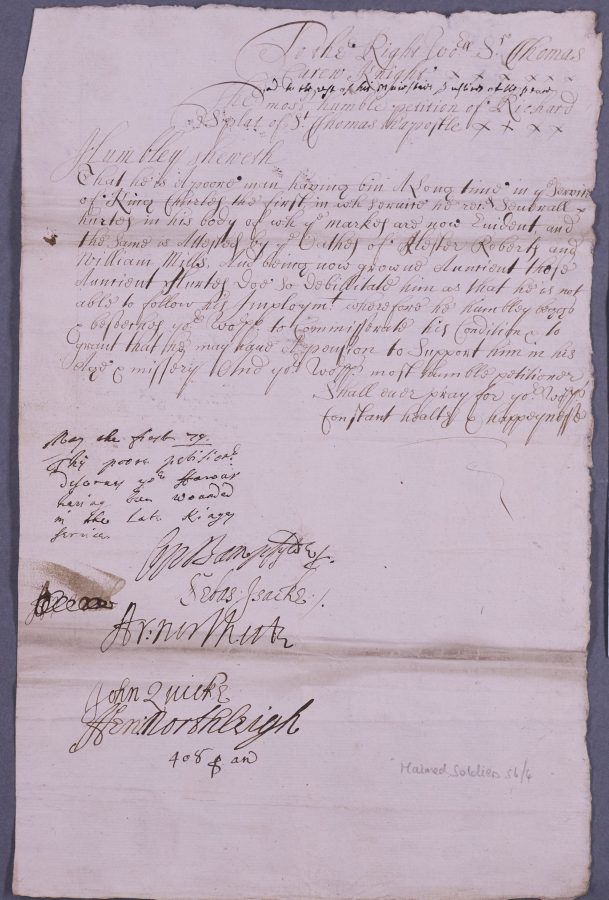 To the Right Wo:ll Sr Thomas
Carew Knight x x x x x x
and to the rest of his Majesties Justices of the peace
The most humble petition of Richard
of St Thomas th'apostle x x x
Humbley sheweth
That he is A poore man having bin A Long time in ye Service
of King Charles the first in wh servise he rec: Seuerall x
hurtes in his body of wh ye markes are now Euident, and
the same is Attested by ye Oathes of Hester Roberts and
William Mills. And being now growne Auntient those
Auntient Hurtes Doe so debillitate him as that he is not
able to follow his Imploymt wherefore he humbley beggs
& beseeches yor Wopps to Commisserate his Condition & to
grant that he may haue A pension to Support him in his
Age & missery And yor Wopps most humble petitioner
Shall euer pray for yor Wopps
Constant health & happeynesse
May the first 79.
This poore petitionr
deserves yor favour
having ben wounded
in the late Kings
service
Cop Bampfylde
Sebas: Isacke
John Quicke
Hen: Northleigh
408 p an
Maimed Soldiers 56/4